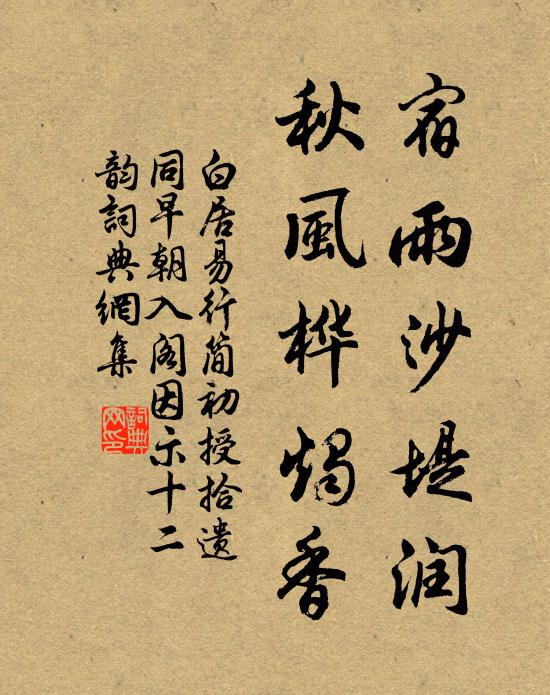 宿雨沙堤润
秋風桦燭香
白居易行简初授拾遗
同早朝入阁因示十二
韵詞典網集
詞典
网印